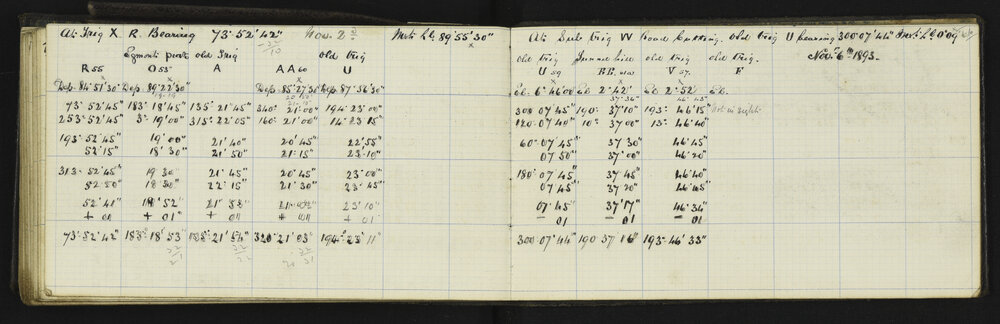 At Trig X R. Bearing 73°52'42" Nov. 2nd Inst. Ht. 89°55'30"
Egmont peak old Trig old Trig
R 55 O 53 A AA 60 U
Dep. 84°51'30" Dep. 89°22'30" Dep. 85°27'30" Dep. 87°56'30"
73°52'45" 183°18'45" 135°21'45" 340°21'00" 194°23'00"
253°52'45" 3°19'00" 315°22'05" 160°21'00" 14°23'15"
193°52'45" 19'00" 21'40" 20'45" 22'55"
52'15" 18'30" 21'50" 21'15" 23'10"
313°52'45" 19'30 21'45" 20'45" 23'00"
52'50" 18'30 22'15" 21'30" 23'45"
52'41" 18'52" 21' 23'10"
+ 01 + 01" + 01 + 01 + 01
73°52'42" 183°18'53" 21'54" 21'03" 194°23'11"
At Sub trig W Road Cutting. old trig U bearing 300°07'44"
Nov. 6th 1893.
old trig old trig old trig
U 59 BB V 57. F
El. 6°46'00 El. 2°42' El. 2°52' El.
37'36"
300°07'45" 190°37'10" 193°46'15" Not in sight
120°07'40" 10°37'00" 13°46'40"
60°07'45" 37'30" 46'45"
07'50" 37'00" 46'20"
180°07'45" 37'45 46'40"
07'45" 37'20" 46'
07'45" 37'17" 46'34"
- 01 - 01 - 01
300°07'44" 190°37'16" 193°46'33"